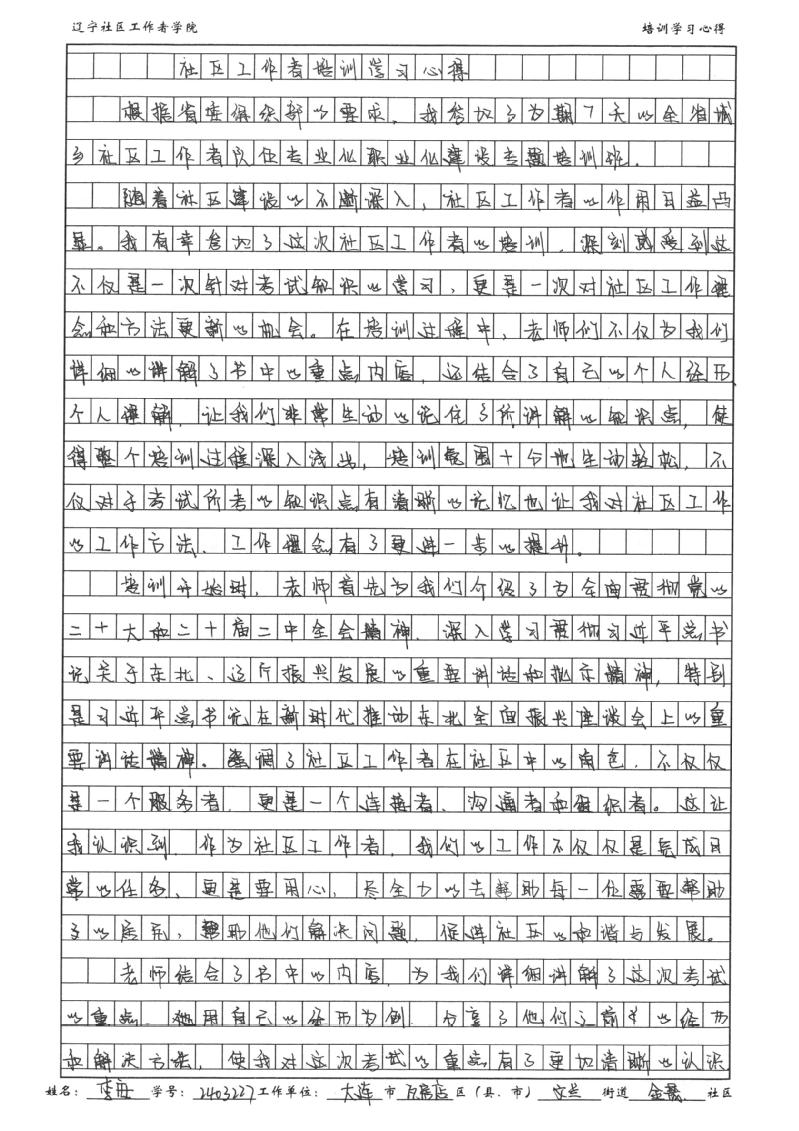 辽宁社区工作者学院 培训学习心得
社区工作者培训学习心得
根据省委组织部的要求，我参加了为期7天的全省城
乡社区工作者队伍专业化职业化建设专题培训班。
随着社区建设的不断深入，社区工作者的作用日益凸
显。我有幸参加了这次社区工作者的培训，深刻感受到这
不仅是一次针对考试知识的学习，更是一次对社区工作理
念和方法更新的机会。在培训过程中，老师们不仅为我们
详细的讲解了书中的重点内容，还结合了自己的个人经历、
个人理解，让我们非常生动的记住了所讲解的知识点，使
得整个培训过程深入浅出，培训氛围十分地生动轻松，不
仅对于考试所考的知识点有清晰的记忆也让我对社区工作
的工作方法、工作理念有了更进一步的提升。
培训开始时，老师首先为我们介绍了为全面贯彻党的
二十大和二十届二中全会精神，深入学习贯彻习近平总书
记关于东北、辽宁振兴发展的重要讲话和批示精神，特别
是习近平总书记在新时代推动东北全面振兴座谈会上的重
要讲话精神。强调了社区工作者在社区中的角色，不仅仅
是一个服务者，更是一个连接者、沟通者和组织者。这让
我认识到，作为社区工作者，我们的工作不仅仅是完成日
常的任务，更是要用心，尽全力的去帮助每一位需要帮助
的居民，帮助他们解决问题，促进社区的和谐与发展。
老师结合了书中的内容，为我们详细讲解了这次考试
的重点，他用自己的经历为例，分享了他们之前的经历
和解决方法，使我对这次考试的重点有了更加清晰的认识
姓名： 学号：2403227 工作单位：大连 市 瓦房店 区（县、市） 文兰 街道 社区